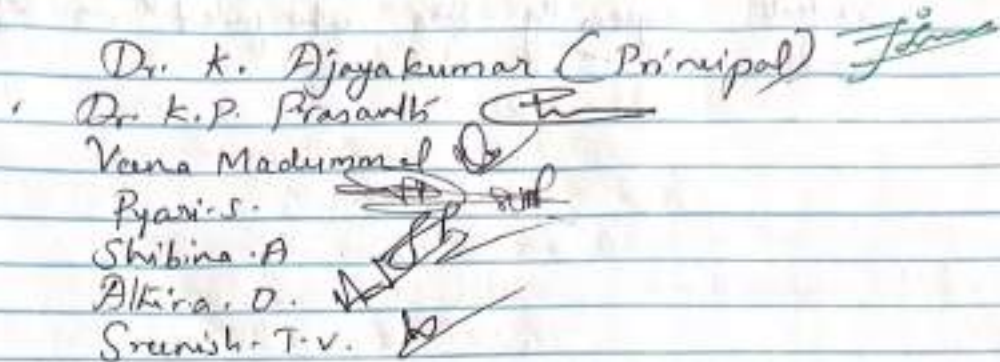 Dr. K. Ajayakumar (Principal)
Dr. K.P. Prasanth
Veena Madummal
Pyari.S.
Shibina.A
Athira.O.
Sreenish.T.V.